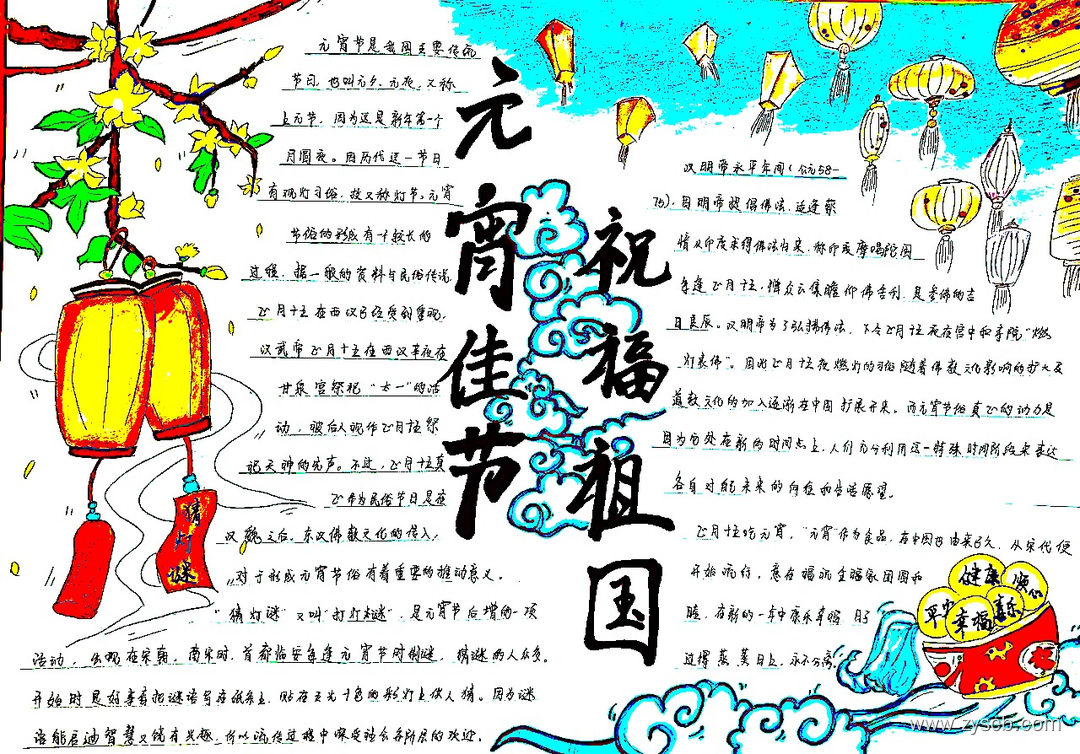 元宵佳节
祝福祖国
元宵节是我国主要传统
节日，也叫元夕、元夜，又称
上元节，因为这是新年第一个
月圆夜。因历代这一节日
有观灯习俗，故又称灯节。元宵
节俗的形成有一个较长的
过程，据一般的资料与民俗传说，
正月十五在西汉已经受到重视，
汉武帝正月十五在西汉夜在
甘泉宫祭祀“太一”的活
动，被后人视作正月十五祭
祀天神的先声。不过，正月十五真
正作为民俗节日是在
汉魏之后。东汉佛教文化的传入，
对于形成元宵节俗有着重要的推动意义。
“猜灯谜”又叫“打灯谜”，是元宵节后增的一项
活动，出现在宋朝。南宋时，首都临安每逢元宵节时制谜，猜谜的人众多。
开始时是好事者把谜语写在纸条上，贴在五光十色的彩灯上供人猜。因为谜
语能启迪智慧又饶有兴趣，所以流传过程中深受社会各阶层的欢迎。
猜灯谜
汉明帝永平年间（公元58—
75），因明帝提倡佛法，适逢蔡
情从印度求得佛法归来，称印度摩喝陀国
每逢正月十五，僧众云集瞻仰佛舍利，是参佛的吉
日良辰。汉明帝为了弘扬佛法，下令正月十五夜在宫中和寺院“燃
灯表佛”。因此正月十五夜燃灯的习俗随着佛教文化影响的扩大及
道教文化的加入逐渐在中国扩展开来。而元宵节俗真正的动力是
因为它处在新的时间点上，人们充分利用这一特殊时间阶段来表达
各自对能未来的向往和美好愿望。
正月十五吃元宵，“元宵”作为食品，在中国也由来已久。从宋代便
开始流行，意在福祝全福家团圆和
睦，在新的一年中康乐幸福，日子
过得蒸蒸日上，永不分离
健康
平安
幸福
喜乐
www.zyscb.com